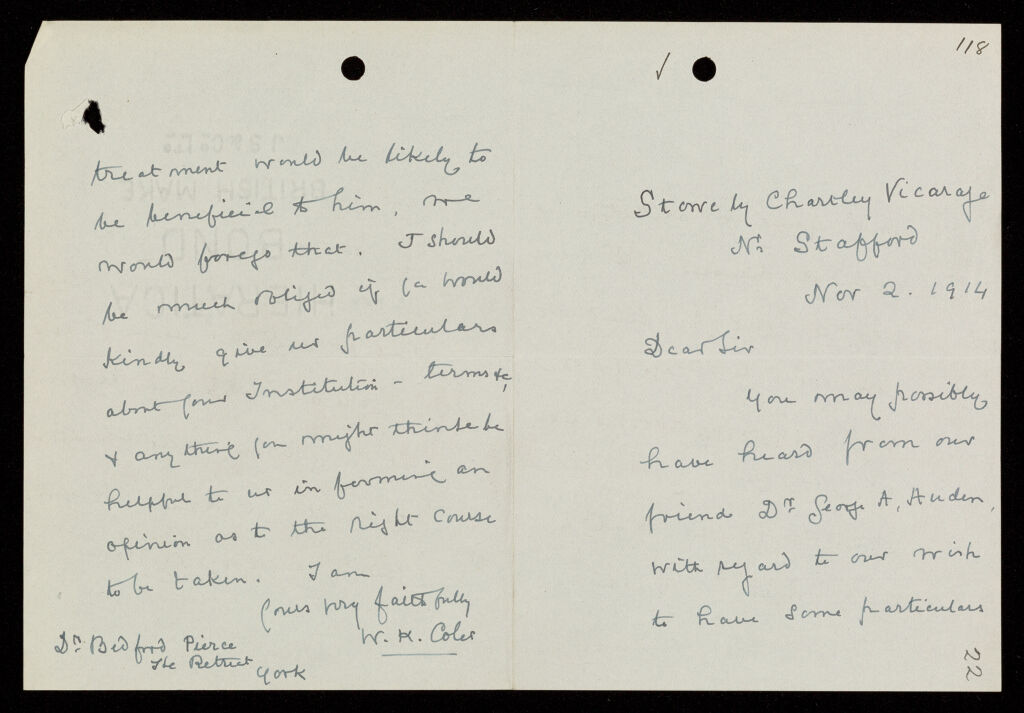 118
Stowe by Chartley Vicarage
Nr. Stafford
Nov 2. 1914
Dear Sir
You may possibly
have heard from our
friend Dr. George A. Auden,
with regard to our wish
to have some particulars
22
treatment would be likely to
be beneficial to him, we
would forego that. I should
be much obliged if you would
kindly give us particulars
about your Institution - terms &c,
& anything you might think to be
helpful to us in forming an
opinion as to the right course
to be taken. I am
Yours very faithfully
W. K. Coles
Dr. Bedford Pierce
The Retreat
York